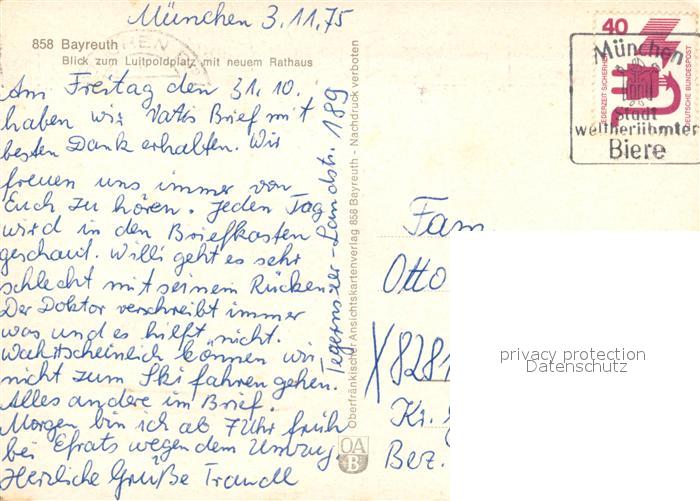 München 3.11.75
858 Bayreuth
Blick zum Luitpoldplatz mit neuem Rathaus
Am Freitag den 31. 10.
haben wir Vatis Brief mit
besten Dank erhalten. Wir
freuen uns immer von
Euch zu hören. Jeden Tag
wird in den Briefkasten
geschaut. Willi geht es sehr
schlecht mit seinem Rücken.
Der Doktor verschreibt immer
was und es hilft nicht.
Wahrscheinlich können wir
nicht zum Ski fahren gehen.
Alles andere im Brief.
Morgen bin ich ab 7 Uhr früh
bei Efrats wegen dem Umzug.
Herzliche Grüße Traudl
Tegernseer-Landstr. 189
Oberfränkischer Ansichtskartenverlag 858 Bayreuth - Nachdruck verboten
OA
B
40
JEDERZEIT SICHERHEIT
DEUTSCHE BUNDESPOST
München
Stadt
weltberühmter
Biere
Fam
Otto
8281
Kr.
Bez.
privacy protection
Datenschutz